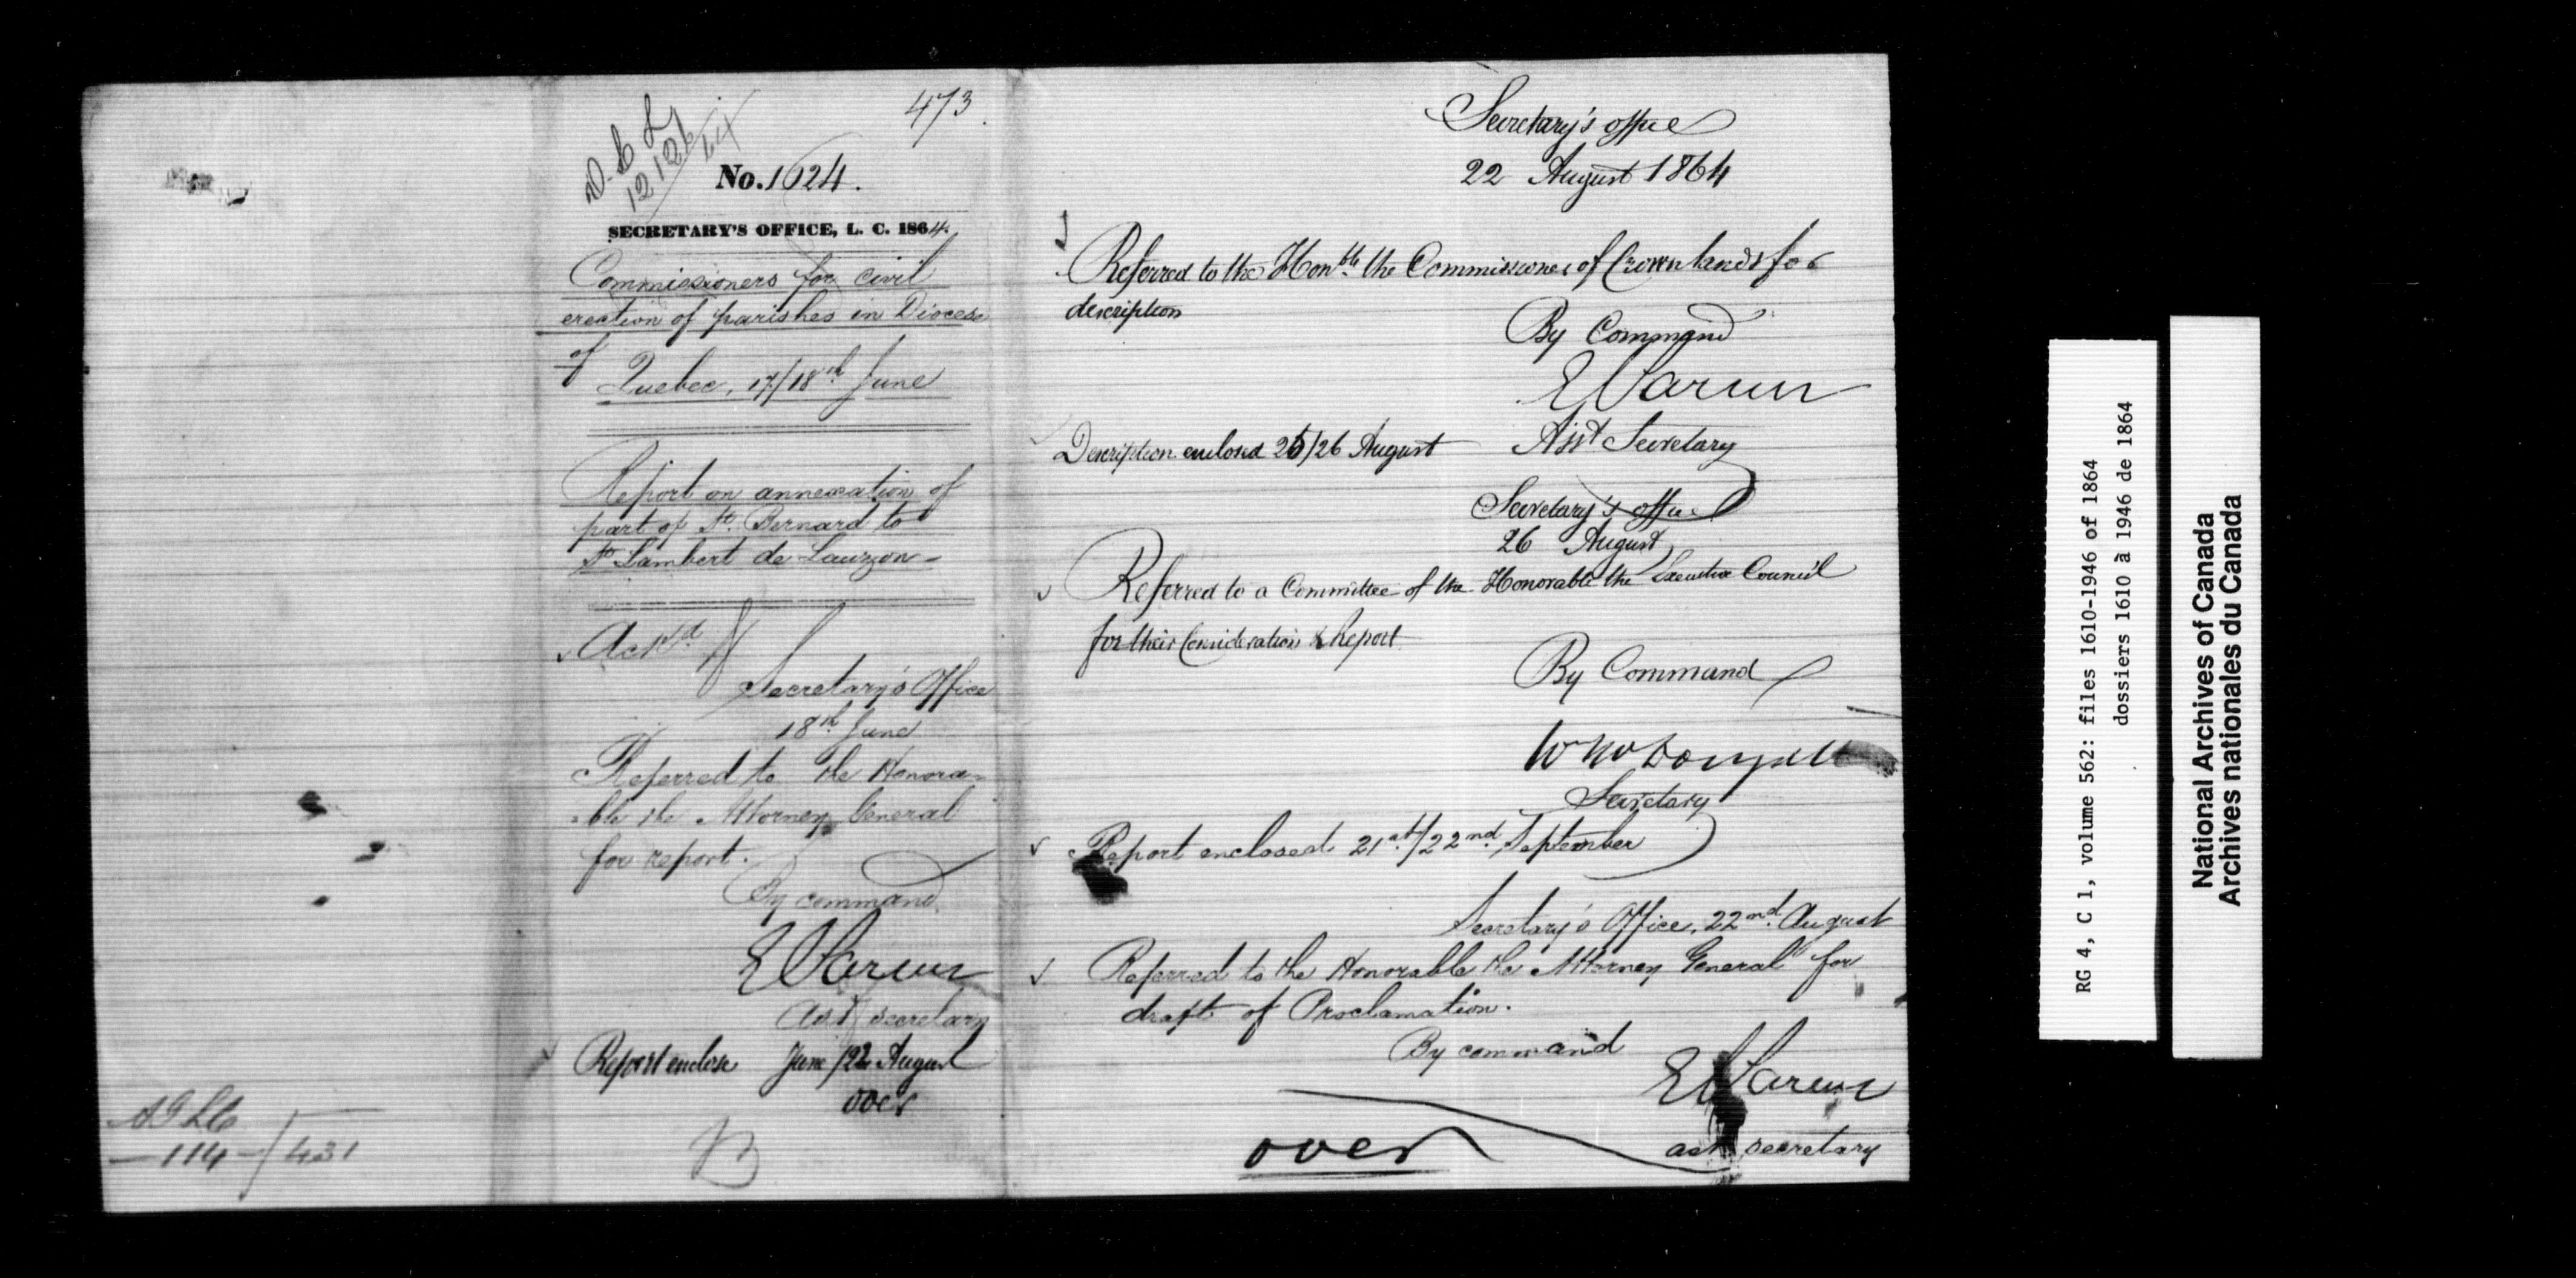 A G L C
114 / 431
473.
D. C L
12126/64
No. 1624.
SECRETARY'S OFFICE, L. C. 1864.
Commissioners for civil
erection of parishes in Diocese
of
Quebec, 17/18th June
Report on annexation of
part of St. Bernard to
St Lambert de Lauzon-
Ackd
Secretary's Office
18th June
Referred to the Honora-
ble the Attorney General
for report.
By command.
Asst secretary
Report enclose June /22 August
over
Secretary's office
22 August 1864
Referred to the Honble the Commissioner of Crown lands for
description
By Command
Asst Secretary
Description enclosed 25/26 August
Secretary's office
26 August
Referred to a Committee of the Honorable the Executive Council
for their Consideration & Report
By Command
Secretary
Report enclosed 21st/22nd September
Secretary's Office, 22nd August
Referred to the Honorable the Attorney General for
draft of Proclamation.
By command
asst secretary
over
RG 4, C 1, volume 562: files 1610-1946 of 1864
dossiers 1610 à 1946 de 1864
National Archives of Canada
Archives nationales du Canada